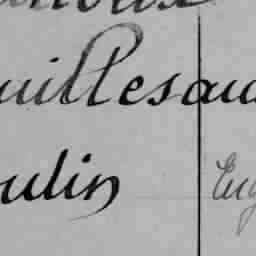 uillesau
oulin
Eug